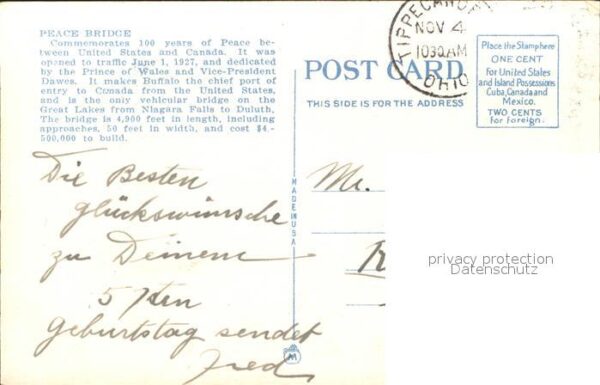 PEACE BRIDGE
Commemorates 100 years of Peace be-
tween United States and Canada. It was
opened to traffic June 1, 1927, and dedicated
by the Prince of Wales and Vice-President
Dawes. It makes Buffalo the chief port of
entry to Canada from the United States,
and is the only vehicular bridge on the
Great Lakes from Niagara Falls to Duluth.
The bridge is 4,900 feet in length, including
approaches, 50 feet in width, and cost $4,-
500,000 to build.
Die Besten
Glückswünsche
zu Deinem
5 ten
Geburtstag sendet
Fred
MADE IN USA
M
POST CARD
THIS SIDE IS FOR THE ADDRESS
TIPPECANOE
NOV 4
1030AM
OHIO
Place the Stamp here
ONE CENT
for United States
and Island Possessions
Cuba, Canada and
Mexico.
TWO CENTS
for Foreign.
Mr.
privacy protection
Datenschutz